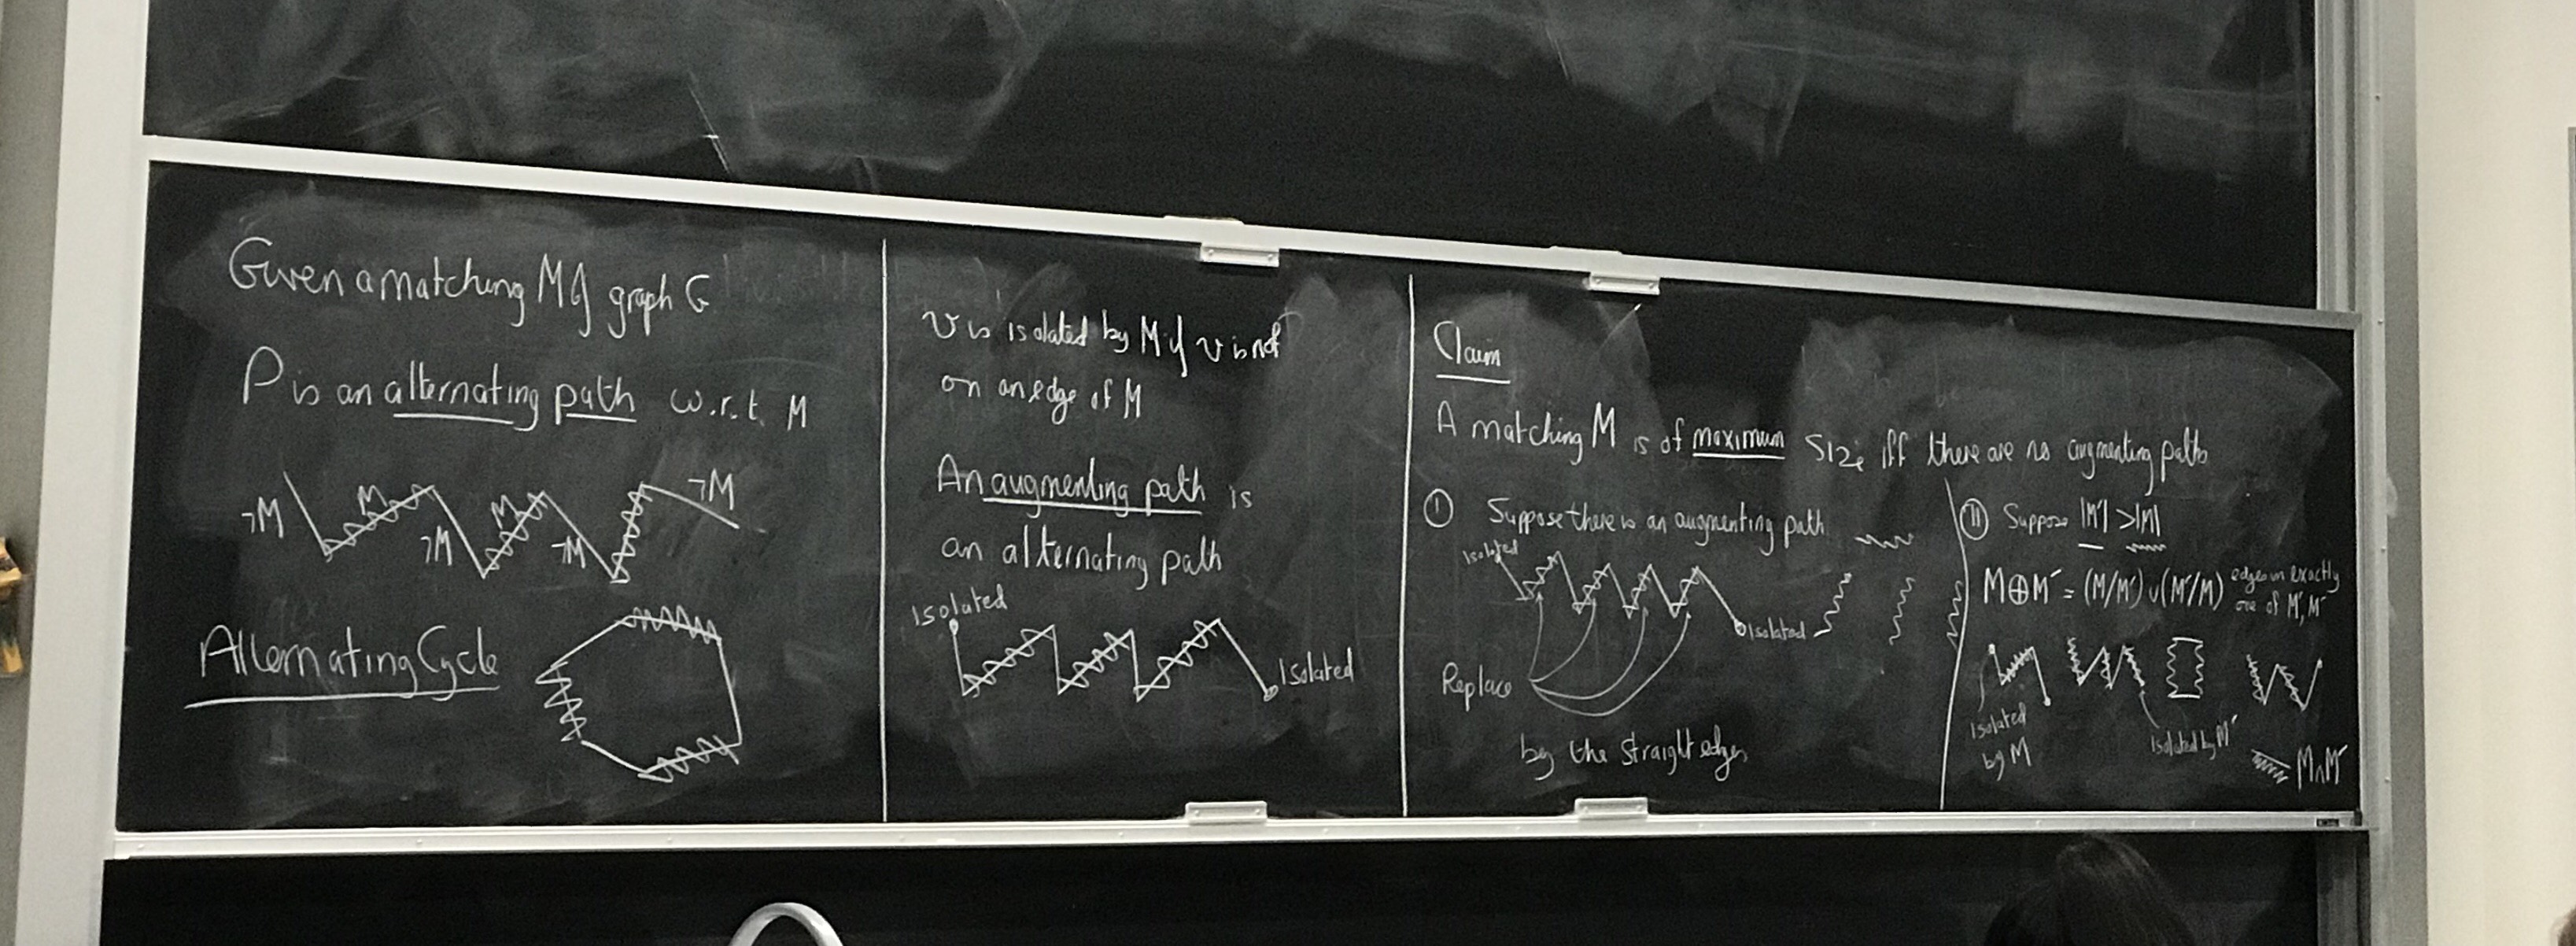 Given a matching M of graph G
P is an alternating path w.r.t. M
¬M
M
¬M
M
¬M
¬M
Alternating Cycle
v is isolated by M if v is not
on an edge of M
An augmenting path is
an alternating path
Isolated
Isolated
Claim
A matching M is of maximum size iff there are no augmenting paths
I Suppose there is an augmenting path
Isolated
Isolated
Replace
by the straight edges
II Suppose |M'| > |M|
M⊕M' = (M/M') ∪ (M'/M) edges in exactly
one of M, M'
Isolated
by M
Isolated by M'
M∩M'